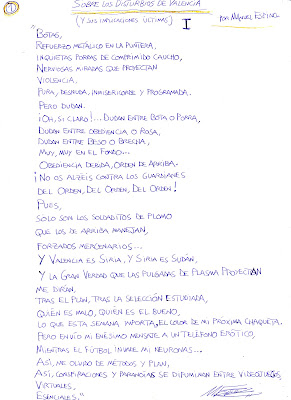 1
SOBRE LOS DISTURBIOS DE VALENCIA
(Y SUS IMPLICACIONES ÚLTIMAS)
I
POR MANUEL ESPINEL
"BOTAS,
REFUERZO METÁLICO EN LA PUNTERA,
INQUIETAS FORMAS DE COMPRIMIDO CAUCHO,
NERVIOSAS MIRADAS QUE PROYECTAN
VIOLENCIA.
PURA, DESNUDA, INMISERICORDE Y PROGRAMADA.
PERO DUDAN.
¡OH, SI CLARO!... DUDAN ENTRE BOTA O PORRA,
DUDAN ENTRE OBEDIENCIA O ROSA,
DUDAN ENTRE BESO O BRECHA,
MUY, MUY EN EL FONDO...
OBEDIENCIA DEBIDA, ORDEN DE ARRIBA.
¡NO OS ALZEIS CONTRA LOS GUARDIANES
DEL ORDEN, DEL ORDEN, DEL ORDEN!
PUES,
SOLO SON LOS SOLDADITOS DE PLOMO
QUE LOS DE ARRIBA MANEJAN,
FORZADOS MERCENARIOS...
Y VALENCIA ES SIRIA, Y SIRIA ES SUDÁN,
Y LA GRAN VERDAD QUE LAS PULGADAS DE PLASMA PROYECTAN
ME DIRÁN,
TRAS EL PLAN, TRAS LA SELECCIÓN ESTUDIADA,
QUIÉN ES MALO, QUIÉN ES EL BUENO,
LO QUE ESTA SEMANA IMPORTA, EL COLOR DE MI PRÓXIMA CHAQUETA.
PERO ENVÍO MI ENÉSIMO MENSAJE A UN TELÉFONO ERÓTICO,
MIENTRAS EL FÚTBOL INVADE MI NEURONAS...
ASÍ, ME OLVIDO DE MÉTODOS Y PLAN,
ASÍ, CONSPIRACIONES Y PARANOIAS SE DIFUMINAN ENTRE VIDEOJUEGOS
VIRTUALES,
ESENCIALES."